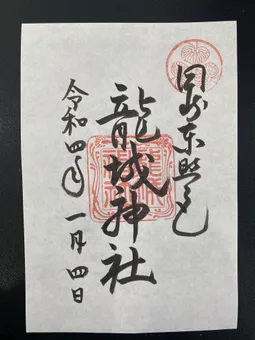 岡崎東照宮
龍城神社
令和四年一月四日